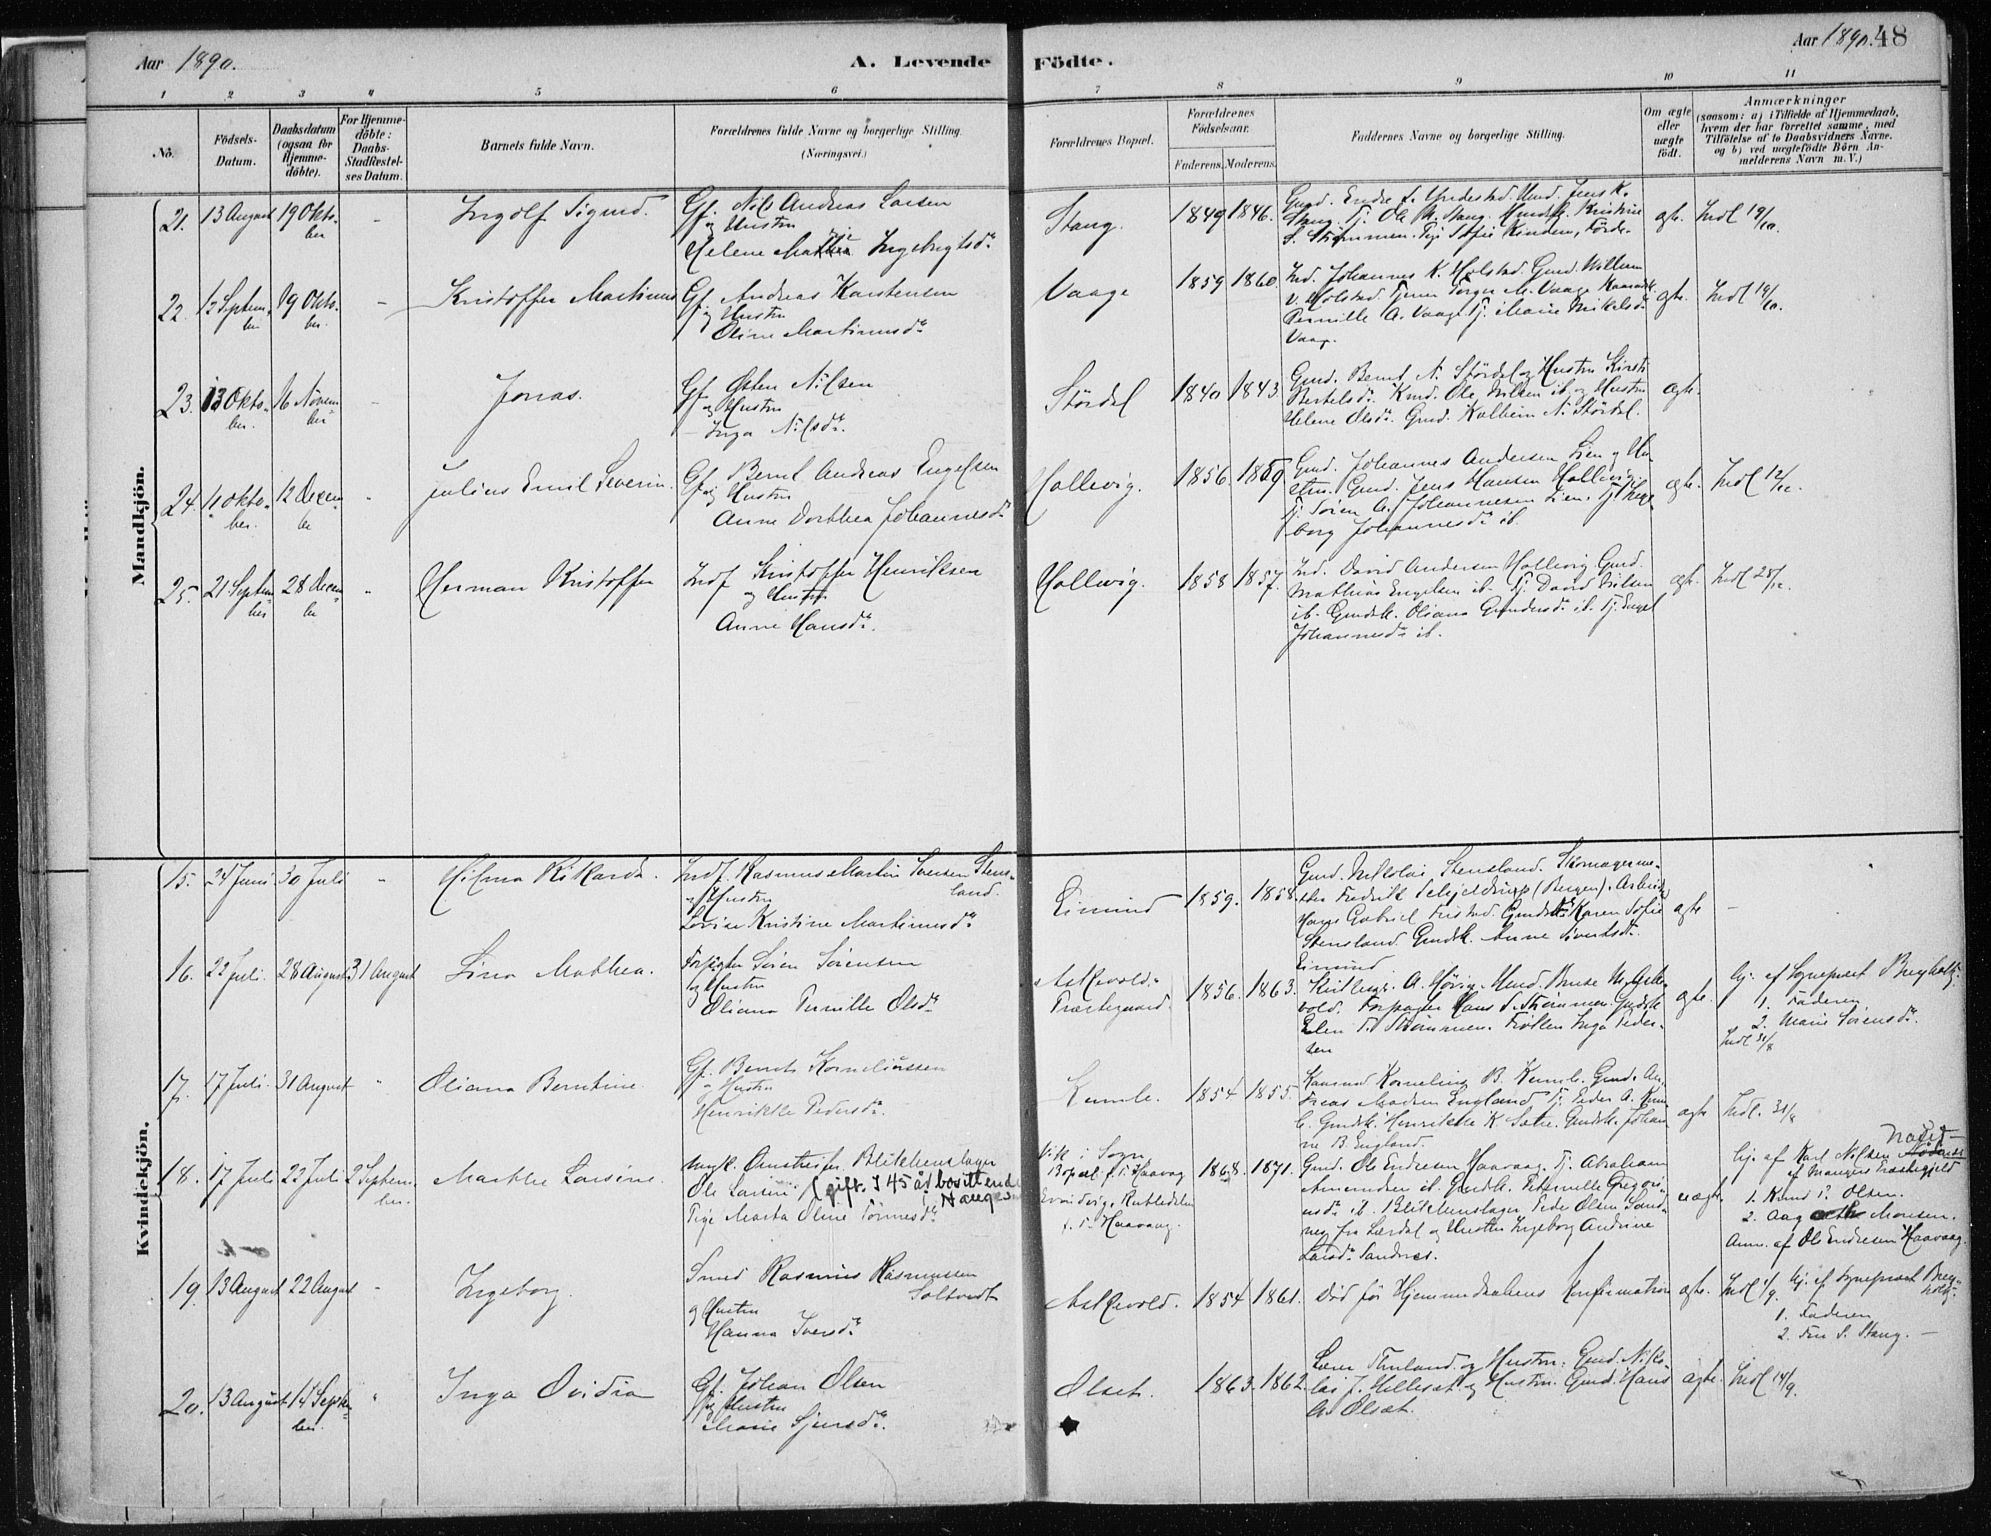 Aar 1890.
A. Levende Födte.
Aar 1890.
48
1 2 3 4 5 6 7 8 9 10 11
No.
Födsels-Datum.
Daabsdatum (ogsaa for Hjemmedöbte).
For Hjemmedöbte: Daabs-Stadfæstelses Datum.
Barnets fulde Navn.
Forældrenes fulde Navne og borgerlige Stilling. (Næringsvei.)
Forældrenes Bopæl.
Forældrenes Födselsaar.
Faderens. Moderens.
Faddernes Navne og borgerlige Stilling.
Om ægte eller uægte födt.
Anmærkninger
(saasom: a) i Tilfælde af Hjemmedaab, hvem der har forrettet samme, med Tilföielse af to Daabsvidners Navne, og b) ved uægtefödte Börn Anmelderens Navn m. V.)
Mandkjön.
21. 13 August 19 Oktober - Ingolf Sigurd. Gf. Nils Andreas Larsen
og Hustru
Helene Ingebrigtsdr.
Stang. 1849 1846.
Stang. Tj. Ole M. Stang. Kristine
S. Strømmen. Pige Sofie Kinden, Førde.
ægte. Indl 19/10.
22. 12 September 19 Oktober. - Kristoffer Martinus Gf. Andreas Karstensen
og Hustru
Oline Martinusdr
Vaage 1859 1860. Ind. Johannes K. Holstad. Gmd. Willum
V. Holstad. Torger M. Vaage
Pernille A. Vaage Tj. Marie Mikelsdr
Vaage.
ægte. Indl 19/10.
23. 13 Oktober. 16 November Jonas. Gf. Østen Nilsen
og Hustru
Inga Nilsdr.
Stördal 1840 1843. Gmd. Bernt N. Stördal og Hustru Kirsti
Bertelsdr. Kmd. Ole Nilsen ib. og Hustru
Helene Olsdr. Gmd. Kolbein N. Stördal.
ægte.
24. 11 Oktober. 12 December " Julius Emil Severin. Gf. Bernt Andreas Engelsen
og Hustru
Anne Dorthea Johannesdr
Hollevig. 1856. 1859 Gmd. Johannes Andersen Lien og Hustru. Gmd. Jens Hansen Hollevig
Tj. Søren A. Johannesen Lien. Tj. Ingeborg Johannesdr ib.
ægte. Indl 12/12.
25. 21 September 28 December " Herman Kristoffer Indf Kristoffer Henriksen
og Hustru
Anne Hansdr.
Hollevig. 1858 1857. Ind. David Andersen Hollevig Gmd.
Mathias Engelsen ib. Tj. David Nilsen
ib. Gmdsk. Oliana Gundersdr ib. Tj. Engel
Johannesdr ib.
ægte. Indl 28/12.
Kvindekjön.
15. 24 Juni 30 Juli " Hilma Rikarda. Indf. Rasmus Martin Iversen Stensland.
og Hustru
Lovise Kristine Martinusdr
Eimind 1859. 1858. Gmd. Nikolai Stensland. Skomagermester Fredrik Schjelderup (Bergen). Arbeider
Hans Gabriel Gmdsk Karen Sofie
Stensland Gmdsk. Anne Sivertsdr.
Eimind
ægte -
16. 22 Juli. 28 August 31 August Lina Mathea. Forpagter Søren Sørensen
og Hustru
Oliana Pernille Olsdr
Askevold. Præstegaard. 1856. 1863. A. Høvig. Brude M. Askevold. Forpagter Hans S. Strømmen. Gmdsk
Elen T. Strømmen. Frøken Inga Pedersen
ægte. hj. af Sognepræst Bregholtz.
1. Faderen
2. Marie Sørensdr.
Indl 31/8
17. 17 Juli. 31 August " Oliana Berntine. Gf. Bernt Korneliussen
og Hustru
Henrikke Pedersdr.
Kumle. 1854 1855. Kaarmand Kornelius B. Kumle. Gmd. Andreas Madsen England Tj. Peder A. Kumle. Gmdsk. Henrikke K. Sætre. Gmdsk. Johanne B. England.
ægte Indl. 31/8
18. 17 Juli 22 Juli 2 September. Marthe Larsine. Ungk. Omstreifer. Blikkenslager
Ole Larsen (gift. I 45 år bosittende i Hauge
Pige Marta Oline Tørresdr.
Vik i Sogn
Bopæl f. T. Haavag
f. T. Haavaag.
1868. 1871. Gmd. Ole Endresen Haavaag. Tj. Abraham
Amundsen ib. Gmdsk. Pernille Gregoriusdr ib. Blikkenslager Peder Olsen Sandnes fra Lærdal og Hustru Ingeborg Andrine
Larsdr Sandnes.
uægte. hj. af Karl Nilsen
af Mangers Præstegjeld
1. Knud P. Olsen.
2. Aagathe Monsen.
Anm. af Ole Endresen Haavaag.
19. 13 August 22 August - Ingeborg. Smed Rasmus Rasmussen
Soltvedt
og Hustru
Hanna Iversdr
Askevold. 1854 1861. Død før Hjemmedaabens Konfirmation ægte. Indl 7/9. hj. af Sognepræst Bregholtz.
1. Faderen
2. Fru S. Stang. -
20. 13 August 14 September " Inga Ovidia Gf. Johan Olsen
og Hustru
Marie Sjursdr.
Olset. 1863. 1862. Lærer Thuland og Hustru. Gmd. Nikolai J. Helleset og Hustru. Gmd. Hans
A. Olset.
ægte. Indl 14/9.